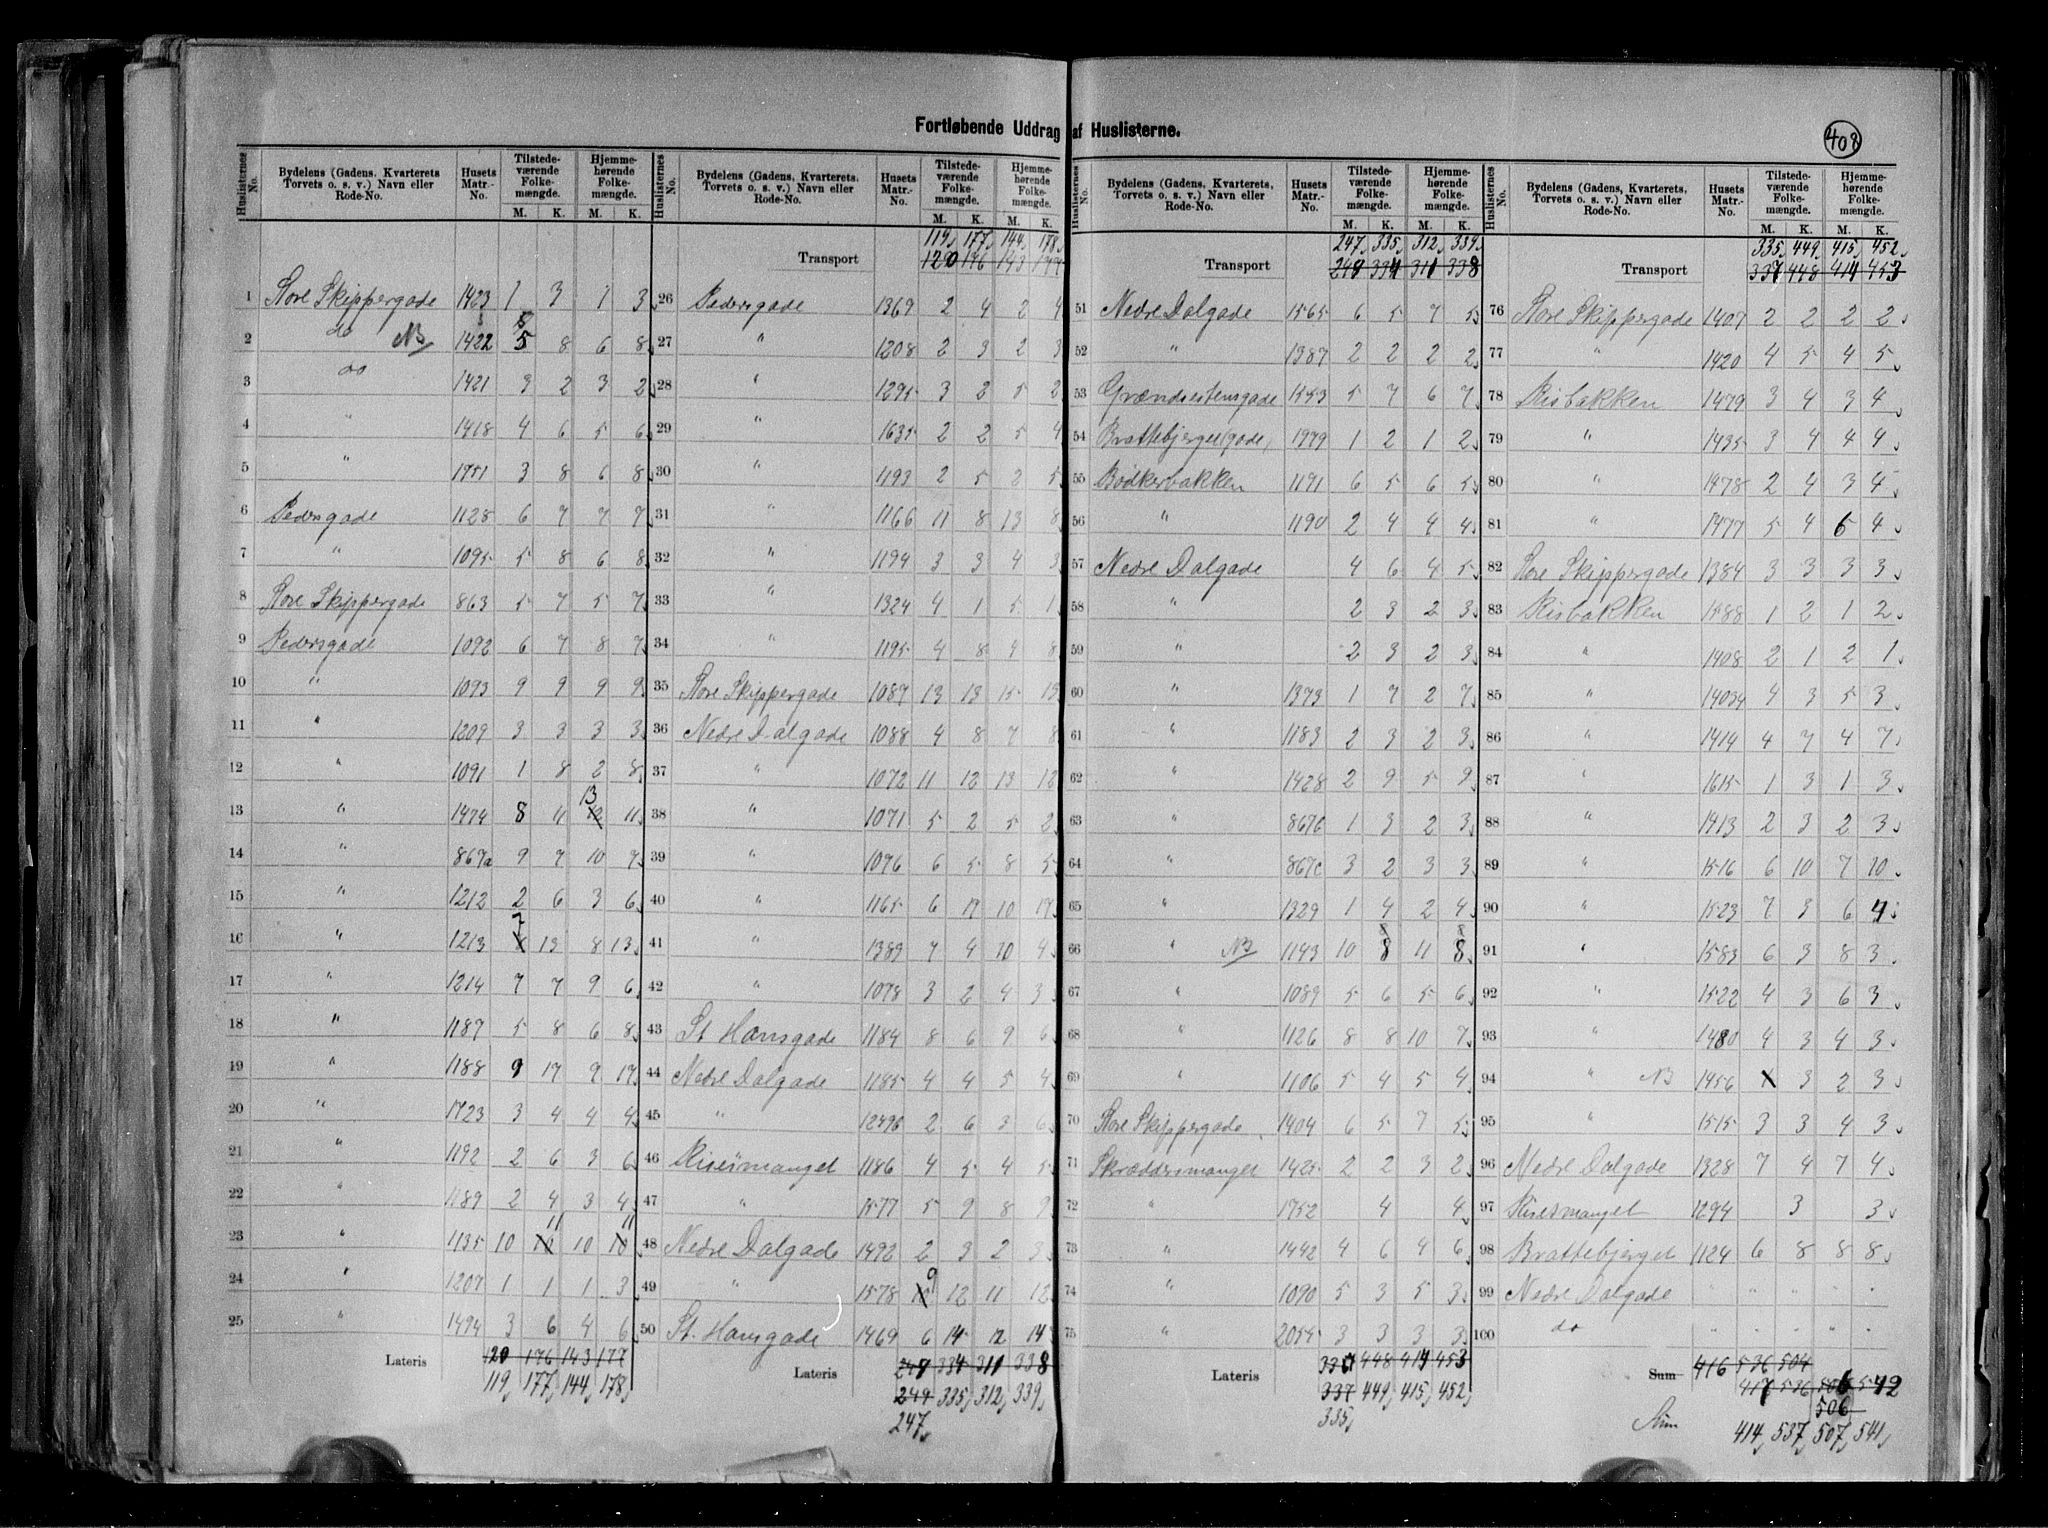 Fortløbende Uddrag af Huslisterne.
408
Huslisternes No. Bydelens (Gadens, Kvarterets, Torvets o. s. v.) Navn eller Rode-No. Husets Matr.-No. Tilstedeværende Folkemængde. M. K. Hjemmehørende Folkemængde. M. K.
1 Store Skippergade 1423 1 3 1 3
2 do NB 1422 5 8 6 8
3 do 1421 3 2 3 2
4 " 1418 4 6 5 6
5 " 1751 3 8 6 8
6 Pedersgade 1128 6 7 7 7
7 " 1095 5 8 6 8
8 Store Skippergade 863 5 7 5 7
9 Pedersgade 1092 6 7 8 7
10 " 1093 9 9 9 9
11 " 1209 3 3 3 3
12 " 1091 1 8 2 8
13 " 1474 8 11 13 11
14 " 867a 9 7 10 7
15 " 1212 2 6 3 6
16 " 1213 7 13 8 13
17 " 1214 7 7 9 6
18 " 1187 5 8 6 8
19 " 1188 9 17 9 17
20 " 1723 3 4 4 4
21 " 1192 2 6 3 6
22 " 1189 2 4 3 4
23 " 1135 10 11 10 11
24 " 1207 1 1 1 3
25 " 1494 3 6 4 6
Lateris 120 176 143 177
119 177 144 178
119 177 144 178
Transport 120 176 143 177
26 Pedersgade 1369 2 4 2 4
27 " 1208 2 3 2 3
28 " 1295 3 2 5 2
29 " 1635 2 2 5 4
30 " 1193 2 5 2 5
31 " 1166 11 8 13 8
32 " 1194 3 3 4 3
33 " 1324 4 1 5 1
34 " 1195 4 8 4 8
35 Store Skippergade 1087 13 13 15 13
36 Nedre Dalgade 1088 4 8 7 8
37 " 1072 11 12 13 12
38 " 1071 5 2 5 2
39 " 1076 6 5 8 5
40 " 1165 6 17 10 17
41 " 1389 7 4 10 4
42 " 1078 3 2 4 3
43 St Hansgade 1184 8 6 9 6
44 Nedre Dalgade 1185 4 4 5 4
45 " 1249b 2 6 3 6
46 Risesmanget 1186 4 5 4 5
47 " 1577 5 9 8 9
48 Nedre Dalgade 1492 2 3 2 3
49 " 1578 9 12 11 12
50 St. Hansgade 1469 6 14 12 14
Lateris 248 334 311 338
249 335 312 339
247
247 335 312 339
Transport 248 334 311 338
51 Nedre Dalgade 1565 6 5 7 5
52 " 1387 2 2 2 2
53 Grændsestensgade 1553 5 7 6 7
54 Brattebjerget(gade) 1979 1 2 1 2
55 Bødkerbakken 1191 6 5 6 5
56 " 1190 2 4 4 4
57 Nedre Dalgade 4 6 4 5
58 " 2 3 2 3
59 " 2 3 2 3
60 " 1373 1 7 2 7
61 " 1183 2 3 2 3
62 " 1428 2 9 5 9
63 " 867b 1 3 2 3
64 " 867c 3 2 3 3
65 " 1329 1 4 2 4
66 " NB 1143 10 8 11 8
67 " 1089 5 6 5 6
68 " 1126 8 8 10 7
69 " 1106 5 4 5 4
70 Store Skippergade 1404 6 5 7 5
71 Skræddersmanget 1425 2 2 3 2
72 " 1752 4 4
73 " 1442 4 6 4 6
74 " 1090 5 3 5 3
75 " 2054 3 3 3 3
Lateris 336 448 414 453
337 449 415 452
335
335 449 415 452
Transport 337 448 414 453
76 Store Skippergade 1407 2 2 2 2
77 " 1420 4 5 4 5
78 Risbakken 1479 3 4 3 4
79 " 1435 3 4 4 4
80 " 1478 2 4 3 4
81 " 1477 5 4 6 4
82 Store Skippergade 1384 3 3 3 3
83 Risbakken 1588 1 2 1 2
84 " 1408 2 1 2 1
85 " 14034 4 3 5 3
86 " 1414 4 7 4 7
87 " 1615 1 3 1 3
88 " 1413 2 3 2 3
89 " 1516 6 10 7 10
90 " 1523 7 3 6 4
91 " 1583 6 3 8 3
92 " 1522 4 3 6 3
93 " 1480 4 3 4 3
94 " NB 1456 1 3 2 3
95 " 1515 3 3 4 3
96 Nedre Dalgade 1328 7 4 7 4
97 Risesmanget 1294 3 3
98 Brattebjerget 1124 6 8 8 8
99 Nedre Dalgade " " " " "
100 do " " " " "
Sum 416 536 504
417 536 506 542
506
Sum 414 537 507 541